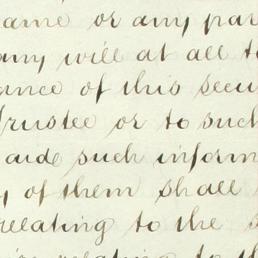 same or any par
any will at all to
ance of this secu
Trustee or to such
aide such inform
y of them shall
relating to the s
relating to th